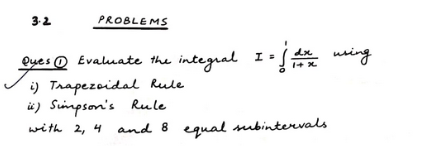 3.2 PROBLEMS
Ques ① Evaluate the integral I = ∫₀¹ dx/(1+x) using
i) Trapezoidal Rule
ii) Simpson's Rule
with 2, 4 and 8 equal subintervals